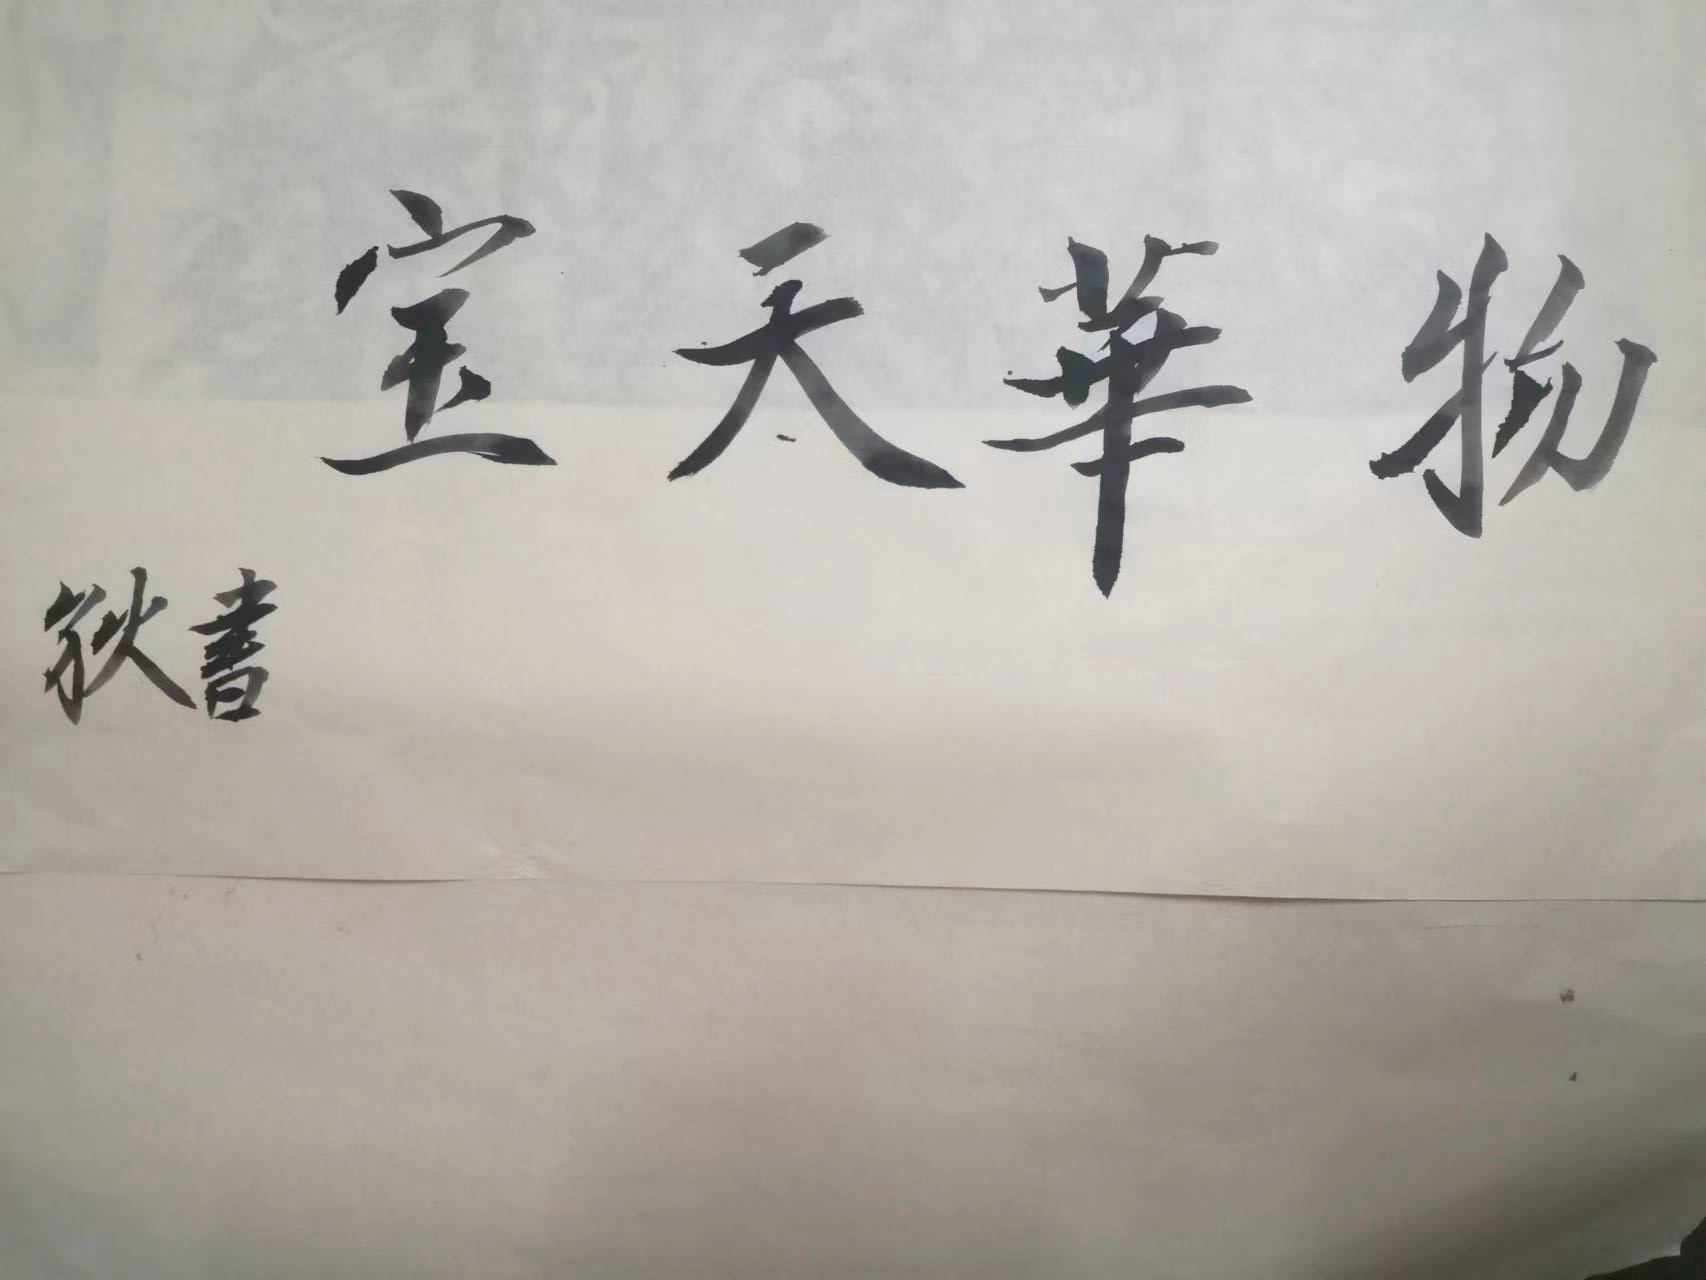 物華天宝
狄書